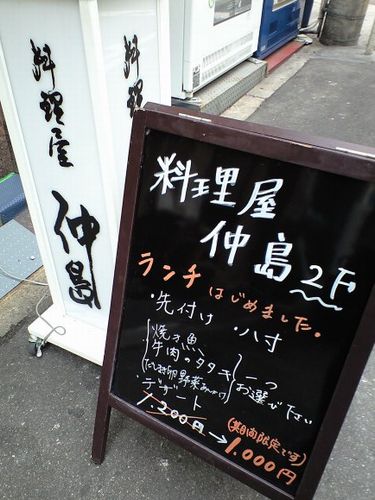 料理屋
仲島
料理屋
仲島 2F
ランチ はじめました。
・先付け ・八寸
焼き魚
牛肉のタタキ
だしまき卵野菜あんかけ
一つお選び下さい
・デザート
1,200円→1,000円
(期間限定です)